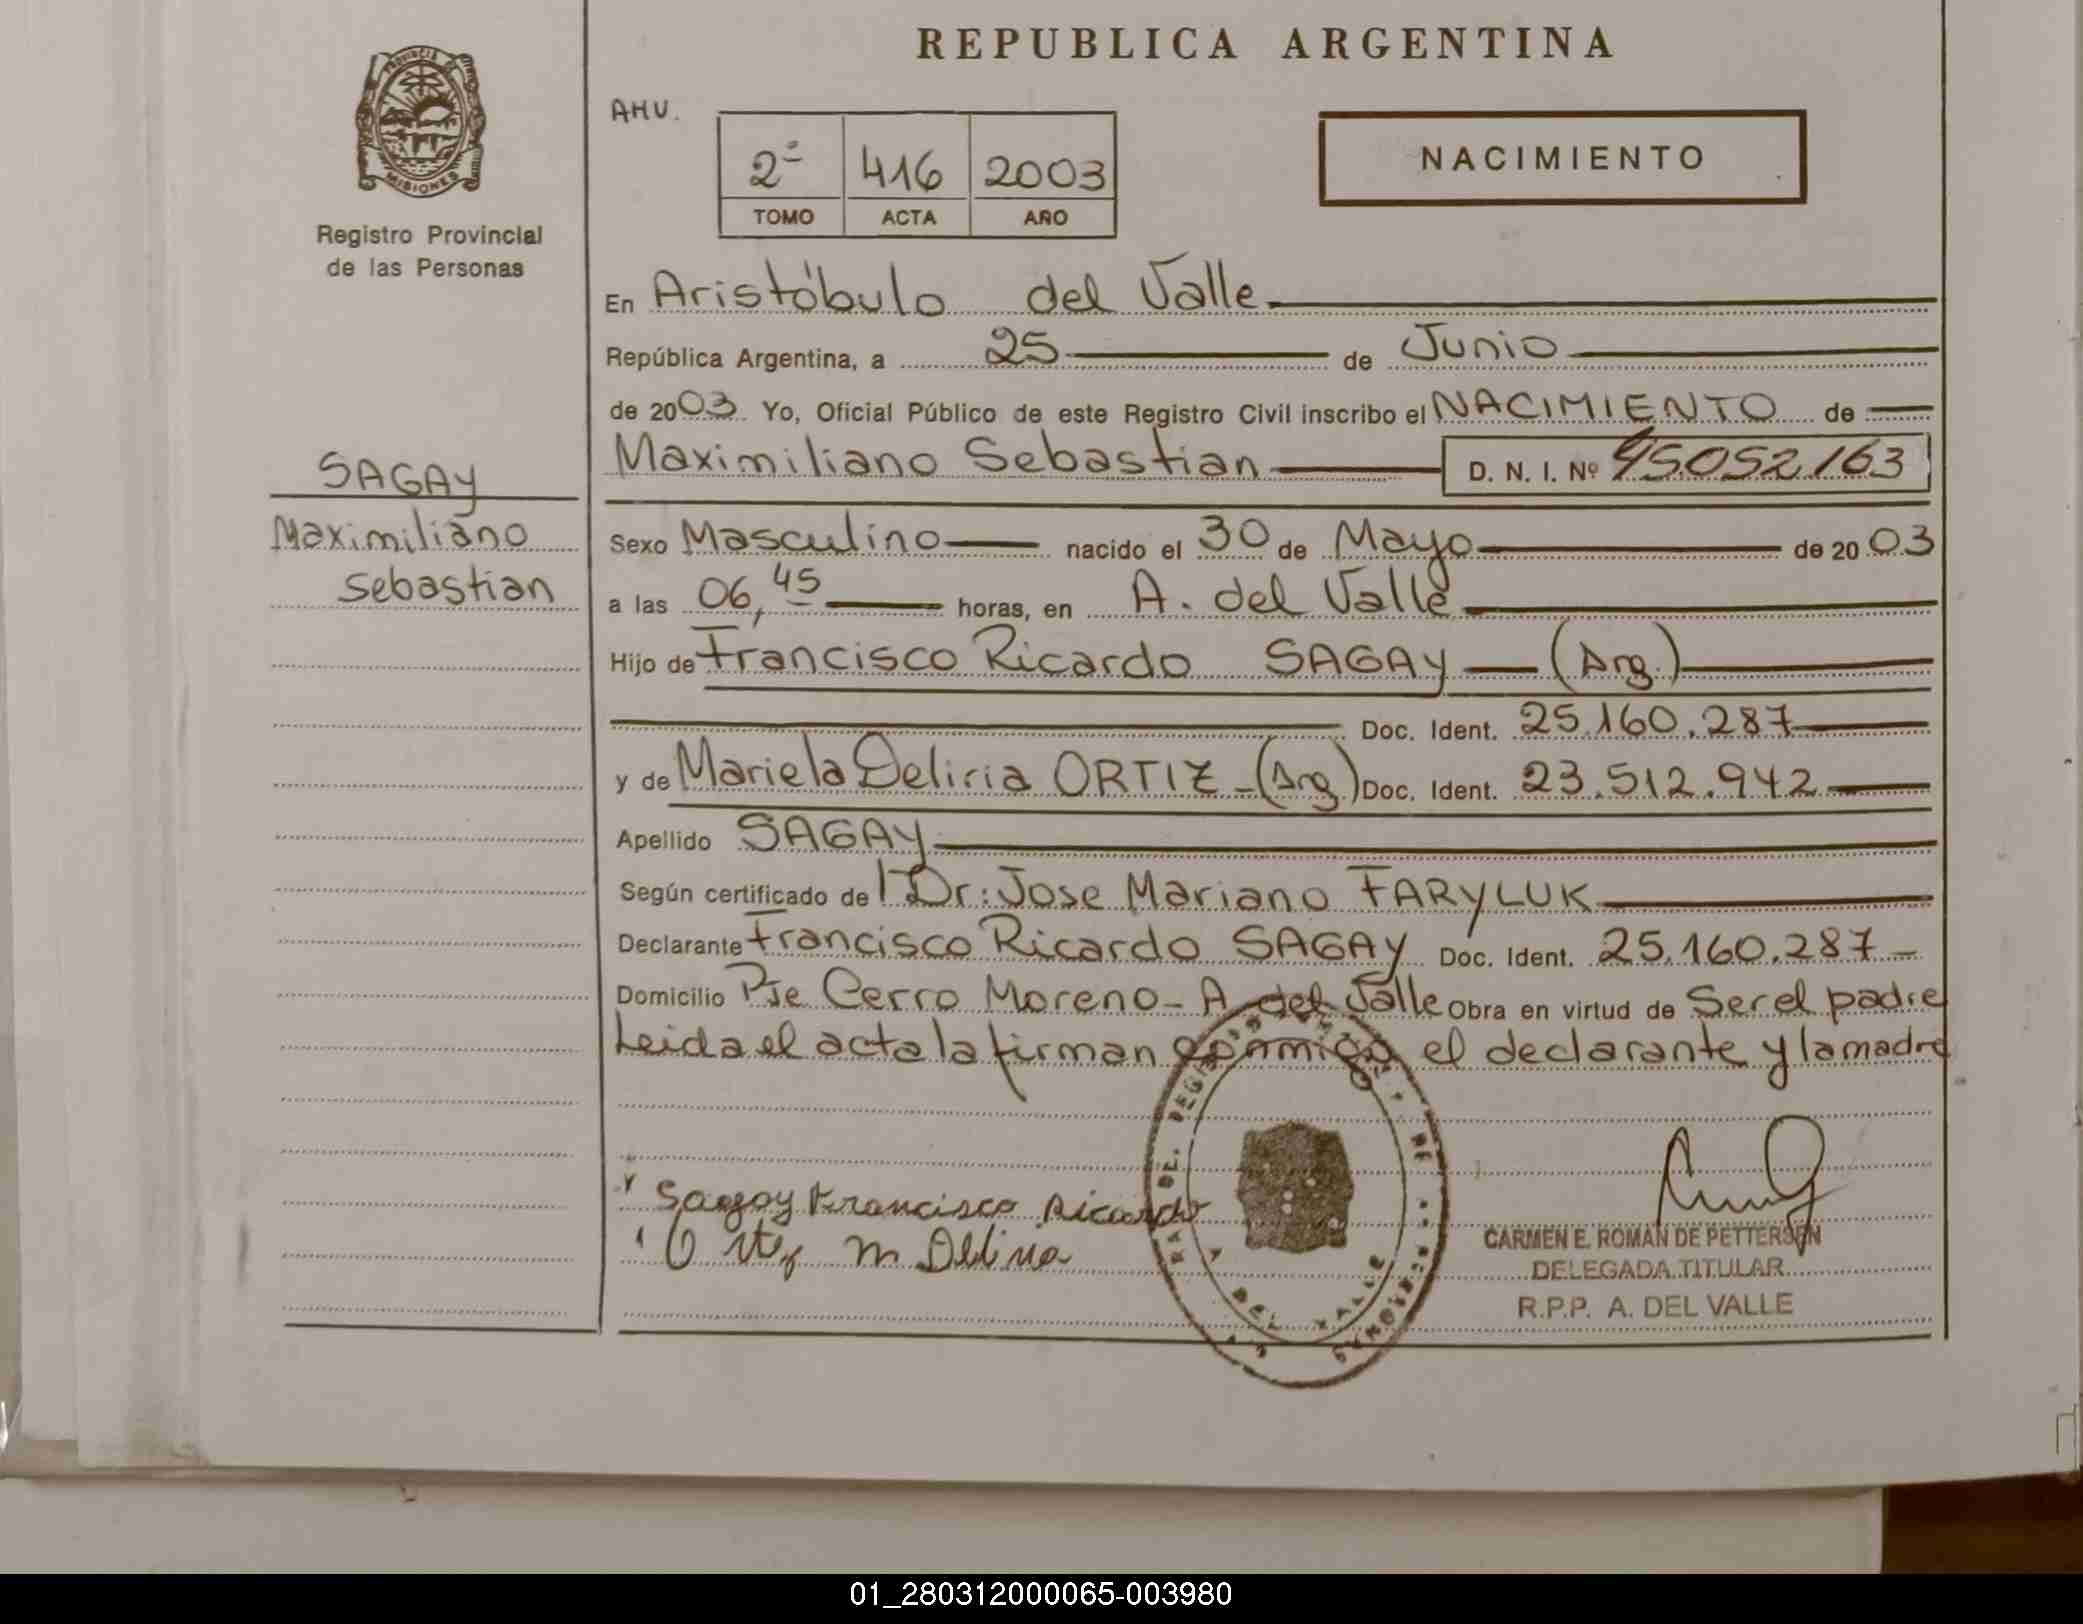 REPUBLICA ARGENTINA
PROVINCIA DE
MISIONES
Registro Provincial
de las Personas
AHV.
2ª 416 2003
TOMO ACTA AÑO
NACIMIENTO
En Aristóbulo del Valle
República Argentina, a 25 de Junio
de 2003. Yo, Oficial Público de este Registro Civil inscribo el NACIMIENTO de
Maximiliano Sebastian D. N. I. Nº 45.052.163
SAGAY
Maximiliano
Sebastian
Sexo Masculino nacido el 30 de Mayo de 2003
a las 06,45 horas, en A. del Valle
Hijo de Francisco Ricardo SAGAY (Arg.)
Doc. Ident. 25.160.287
y de Mariela Deliria ORTIZ - (Arg.) Doc. Ident. 23.512.942
Apellido SAGAY
Según certificado de Dr: Jose Mariano FARYLUK
Declarante Francisco Ricardo SAGAY Doc. Ident. 25.160.287
Domicilio Pje Cerro Moreno - A. del Valle Obra en virtud de Ser el padre
Leida el acta la firman conmigo el declarante y la madre
Sagay Francisco Ricardo
CARMEN E. ROMAN DE PETTERSEN
DELEGADA TITULAR
R.P.P. A. DEL VALLE
A DEL VALLE
01_280312000065-003980